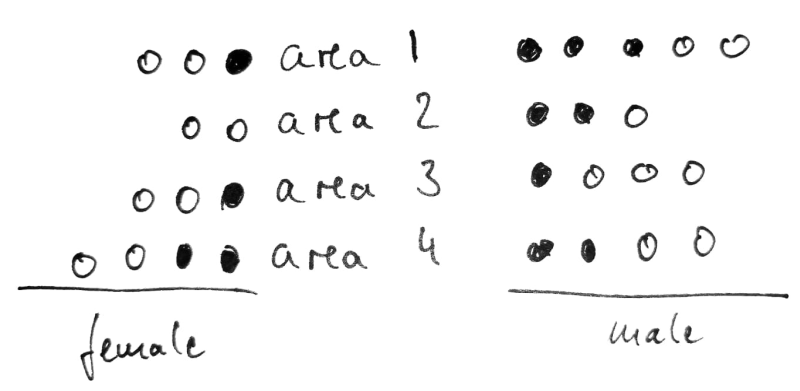 area 1
area 2
area 3
area 4
female male